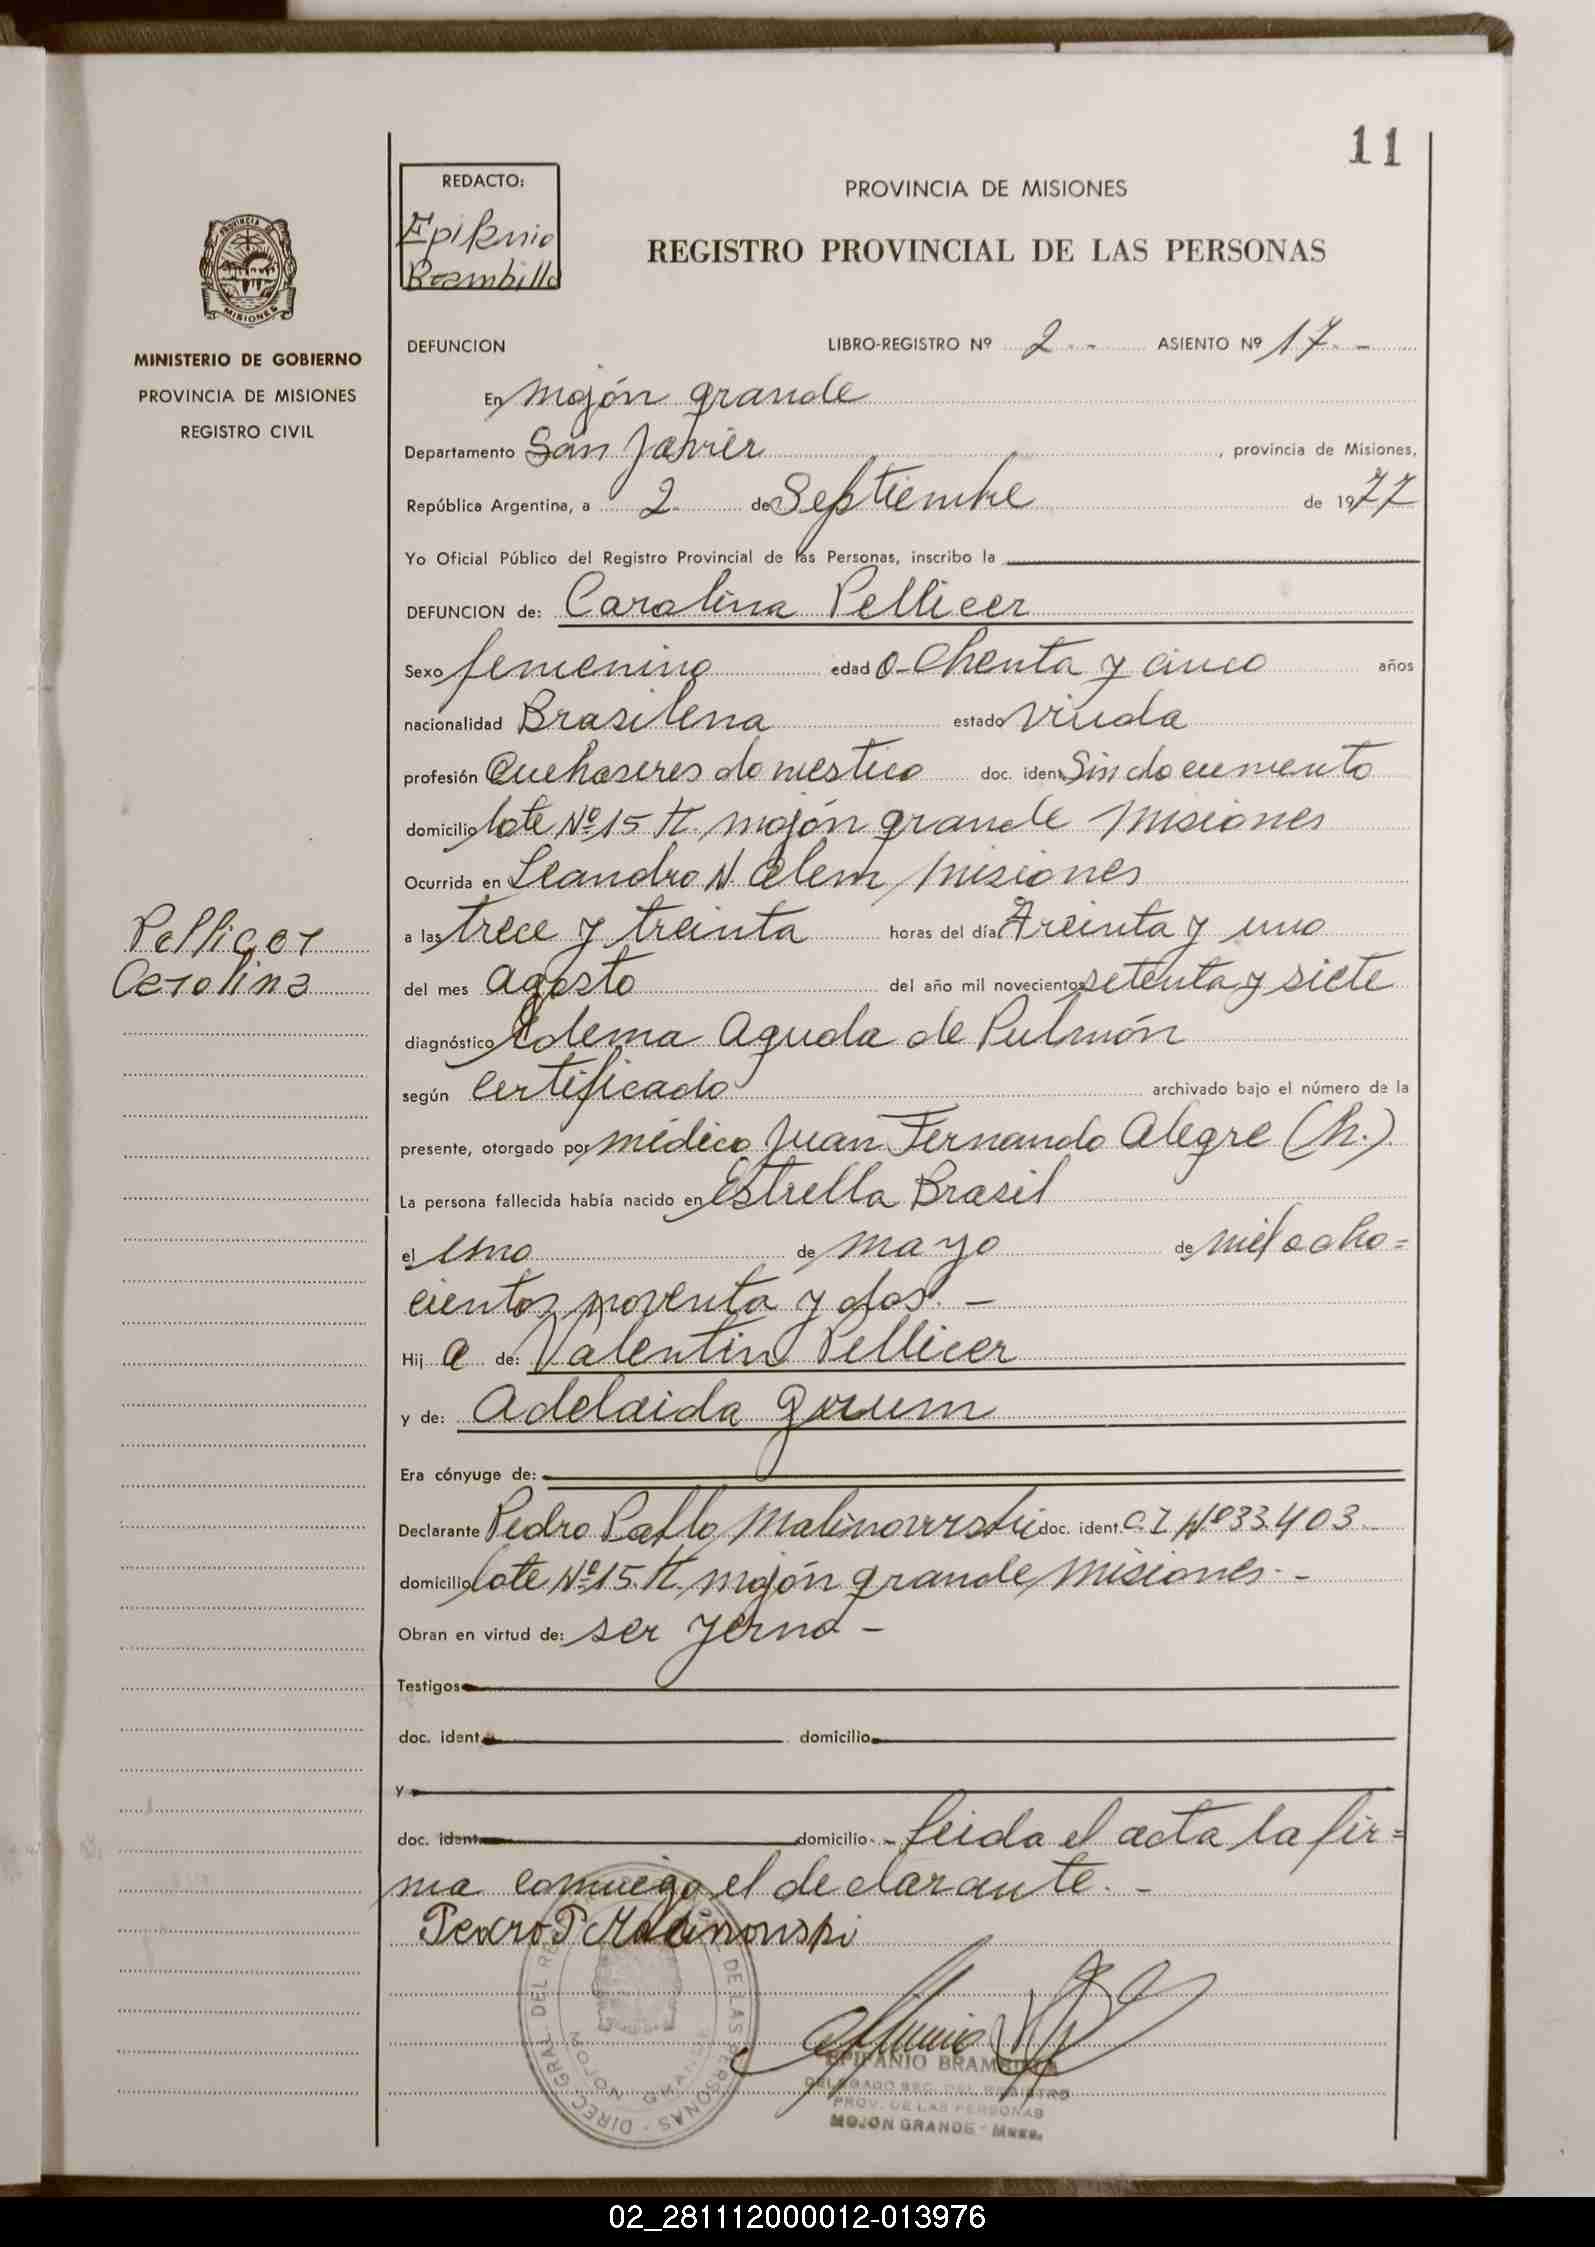 11
REDACTO:
Epifanio
Brambilla
PROVINCIA DE MISIONES
REGISTRO PROVINCIAL DE LAS PERSONAS
MINISTERIO DE GOBIERNO
PROVINCIA DE MISIONES
REGISTRO CIVIL
DEFUNCION LIBRO-REGISTRO Nº 2.- ASIENTO Nº 17.-
En Mojón grande
Departamento San Javier, provincia de Misiones,
República Argentina, a 2 de Septiembre de 1977
Yo Oficial Público del Registro Provincial de las Personas, inscribo la
DEFUNCION de: Carolina Pellicer
Sexo femenino edad ochenta y cinco años
nacionalidad Brasilena estado viuda
profesión Quehaseres domestico doc. ident. Sin documento
domicilio lote Nº 15 H. mojón grande Misiones
Ocurrida en Leandro N. Alem Misiones
a las trece y treinta horas del día treinta y uno
del mes agosto del año mil novecientos setenta y siete
diagnóstico Edema Aguda de Pulmón
según certificado archivado bajo el número de la
presente, otorgado por médico Juan Fernando Alegre (h.)
La persona fallecida había nacido en Estrella Brasil
el uno de mayo de mil ocho=
cientos noventa y dos.-
Hij a de: Valentin Pellicer
y de: Adelaida
Era cónyuge de:
Declarante Pedro Pablo Malinowski doc. ident. C.I Nº 33.403
domicilio lote Nº 15.H. mojón grande Misiones.-
Obran en virtud de: ser yerno -
Testigos
doc. ident. domicilio
y
doc. ident. domicilio.- leida el acta la fir=
ma conmigo el declarante.-
Pedro P Malinowski
Pellicer
Carolina
DIREC. GRAL. DEL REG. DE LAS PERSONAS
MOJON GRANDE
EPIFANIO BRAMBILLA
DELEGADO SEC. DEL REGISTRO
PROV. DE LAS PERSONAS
MOJON GRANDE - Mnes.
02_281112000012-013976